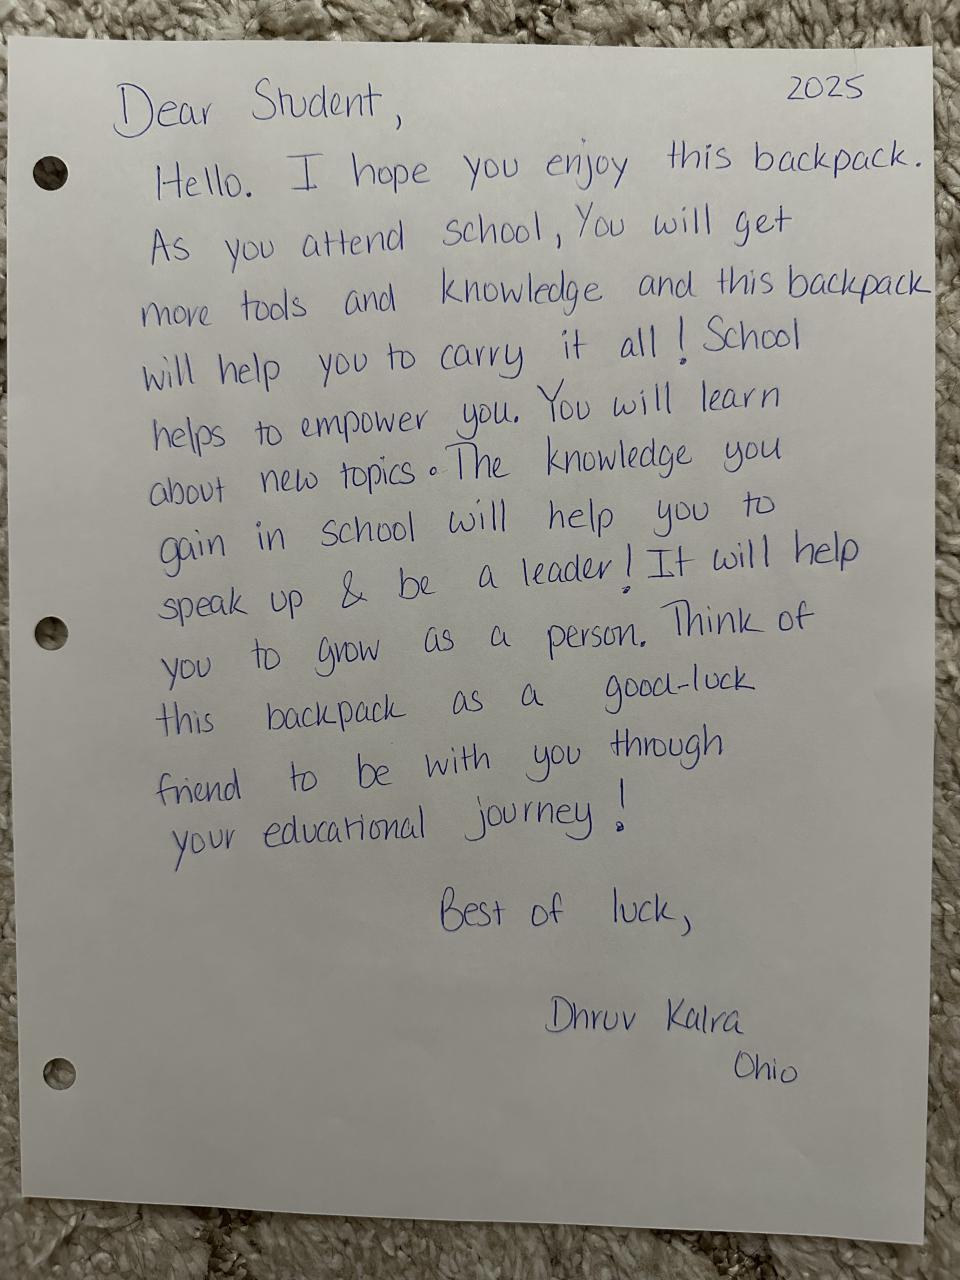 2025
Dear Student,
Hello. I hope you enjoy this backpack.
As you attend school, You will get
more tools and knowledge and this backpack
will help you to carry it all! School
helps to empower you. You will learn
about new topics. The knowledge you
gain in school will help you to
speak up & be a leader! It will help
you to grow as a person. Think of
this backpack as a good-luck
friend to be with you through
your educational journey!
Best of luck,
Dhruv Kalra
Ohio